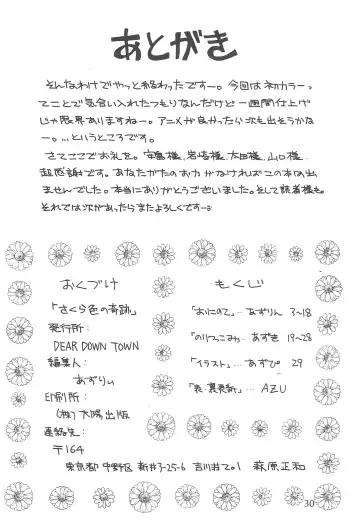 あとがき
そんなわけでやっと終わったですー。今回は初カラーっ
てことで気合い入れたつもりなんだけど一週間仕上げ
じゃ限界ありますねー。アニメが良かったら次も出そうかな
ー。…というところです。
さてここでお礼を。 岩崎様、太田様、山口様、
超感謝です。あなたがたのお力がなければこの本は出
ませんでした。本当にありがとうございました。そして読者様も。
それでは次があったらまたよろしくですー。
おくづけ
「さくら色の奇跡」
発行所:
DEAR DOWN TOWN
編集人:
あずりん
印刷所:
(株)大陽出版
連絡先:
〒164
東京都 中野区 新井3-25-6 吉川荘 萩原正和
もくじ
あずりん 3~18
あずき 19~28
「イラスト」… あずぴ 29
「表・裏表紙」… AZU
30